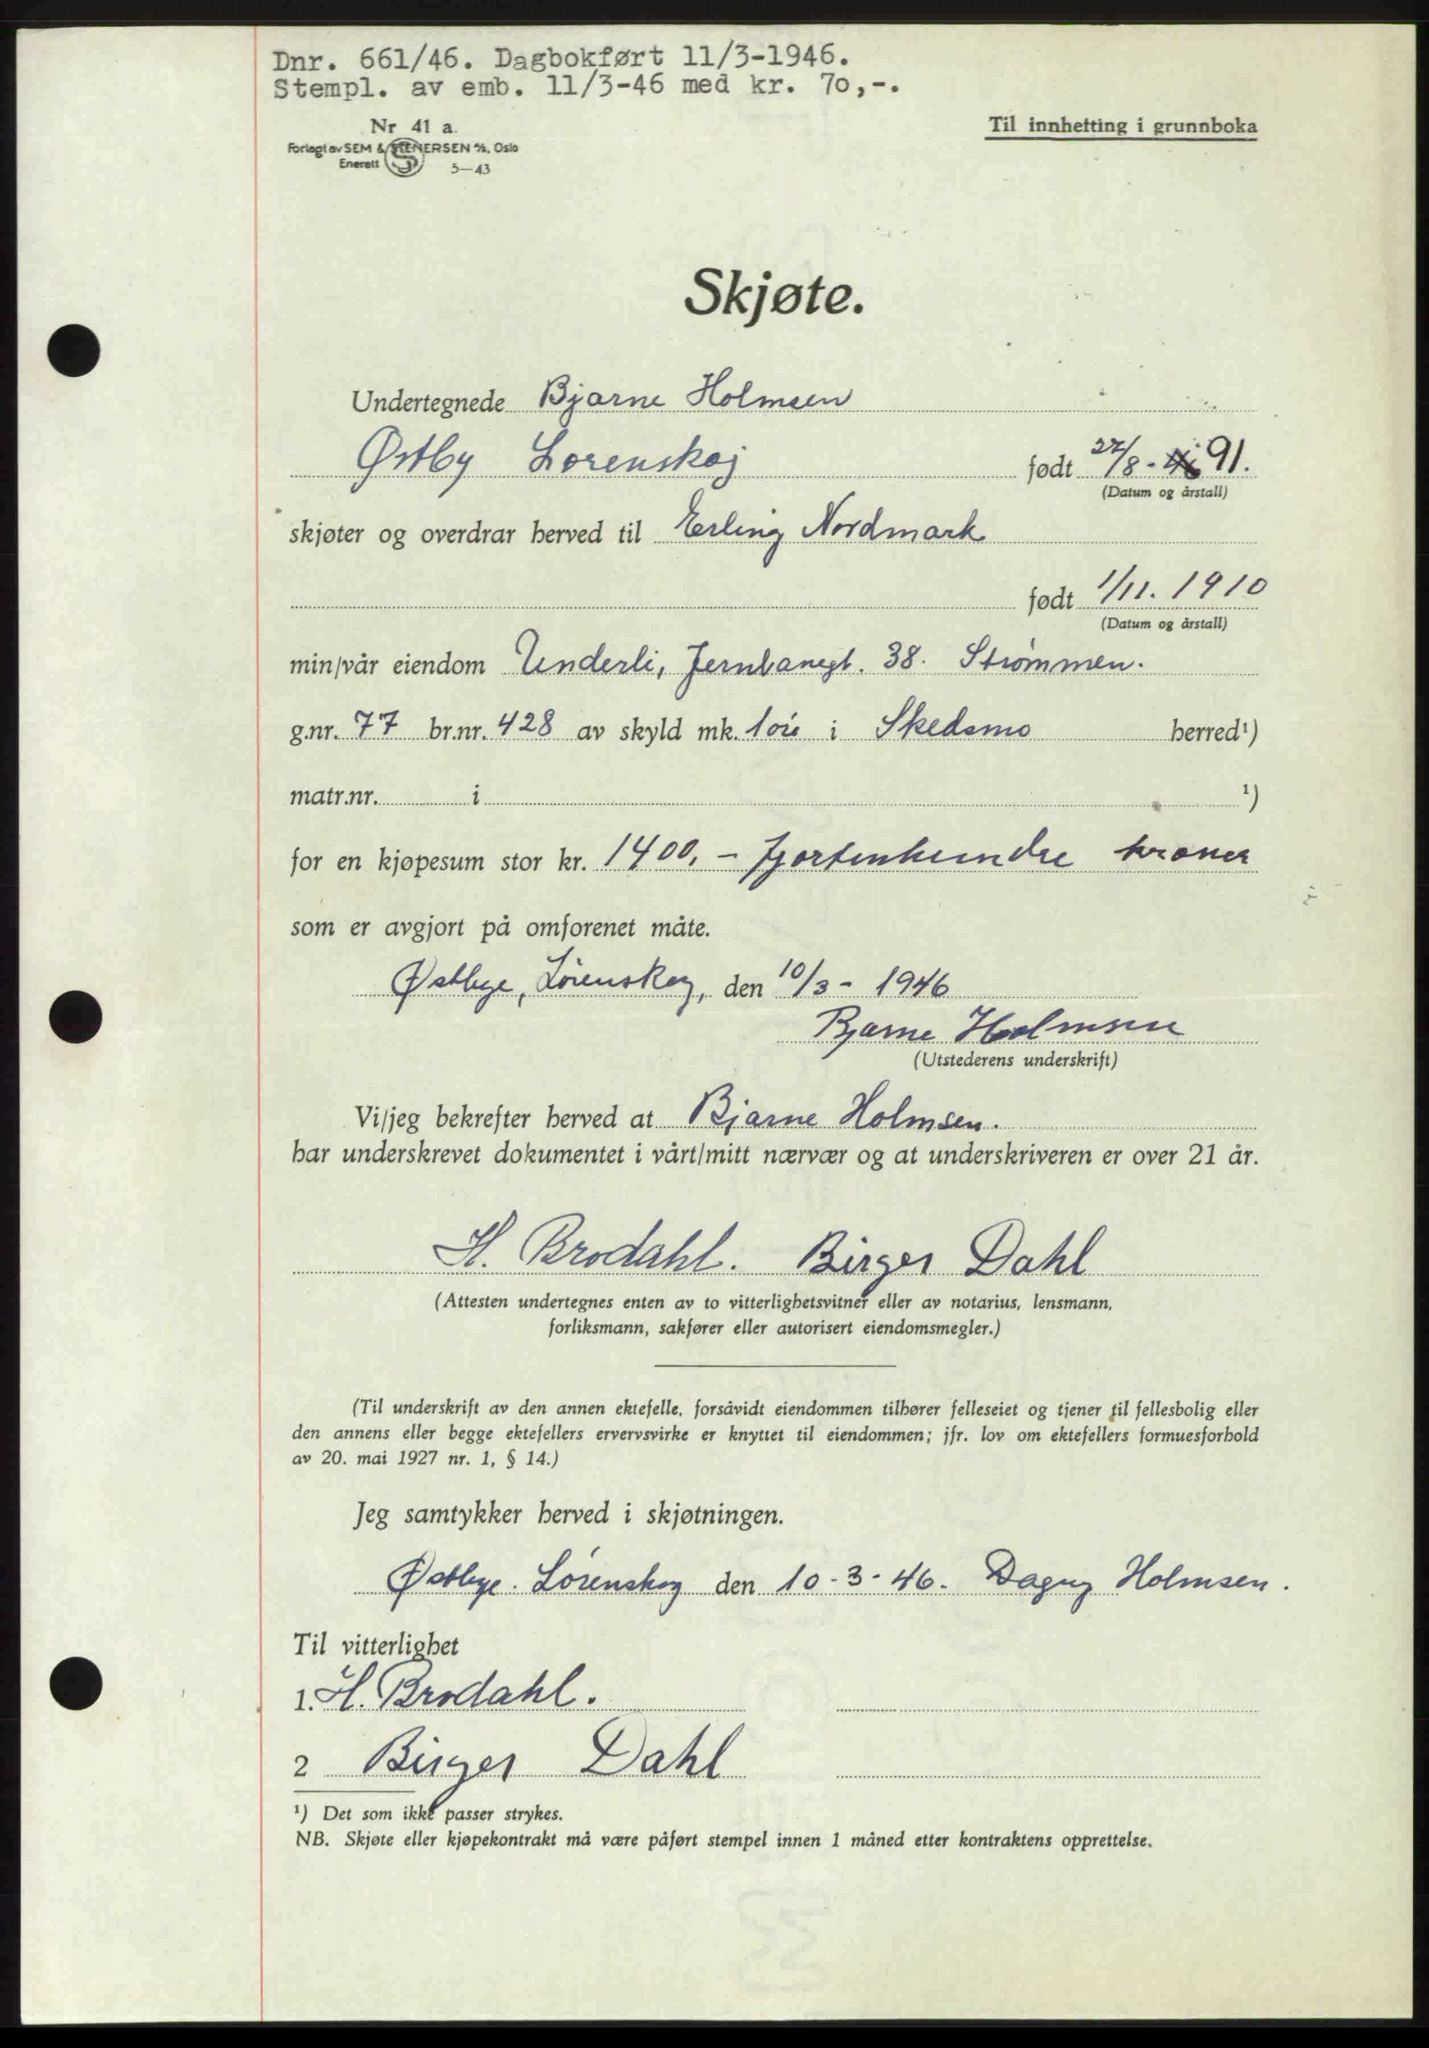 Dnr. 661/46. Dagbokført 11/3-1946.
Stempl. av emb. 11/3-46 med kr. 70,-.
Nr 41 a.
Til innhefting i grunnboka
Forlagt av SEM & STENERSEN A/S, Oslo
Enerett
5-43
Skjøte.
Undertegnede Bjarne Holmsen
Østby Lørenskog født 27/8 - 91.
(Datum og årstall)
skjøter og overdrar herved til Erling Nordmark
født 1/11. 1910
(Datum og årstall)
min/vår eiendom Underli, Jernbanegt. 38. Strømmen.
g.nr. 77 br.nr. 428 av skyld mk. 1 øre i Skedsmo herred¹)
matr.nr. i ¹)
for en kjøpesum stor kr. 1400,- fjortenhundre kroner
som er avgjort på omforenet måte.
Østbye, Lørenskog, den 10/3 - 1946
Bjarne Holmsen
(Utstederens underskrift)
Vi/jeg bekrefter herved at Bjarne Holmsen.
har underskrevet dokumentet i vårt/mitt nærvær og at underskriveren er over 21 år.
H. Brodahl. Birger Dahl
(Attesten undertegnes enten av to vitterlighetsvitner eller av notarius, lensmann,
forliksmann, sakfører eller autorisert eiendomsmegler.)
(Til underskrift av den annen ektefelle, forsåvidt eiendommen tilhører felleseiet og tjener til fellesbolig eller
den annens eller begge ektefellers ervervsvirke er knyttet til eiendommen; jfr. lov om ektefellers formuesforhold
av 20. mai 1927 nr. 1, § 14.)
Jeg samtykker herved i skjøtningen.
Østbye. Lørenskog den 10-3-46. Dagny Holmsen.
Til vitterlighet
1. H. Brodahl.
2 Birger Dahl
¹) Det som ikke passer strykes.
NB. Skjøte eller kjøpekontrakt må være påført stempel innen 1 måned etter kontraktens opprettelse.